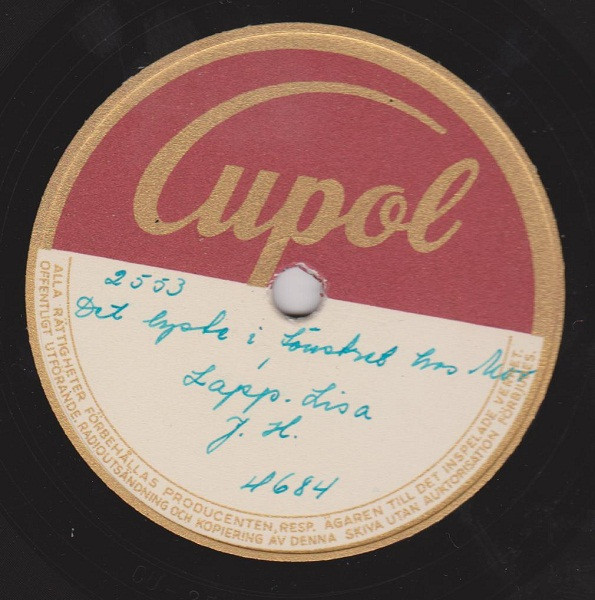 Cupol
2553
Det lyste i fönstret hos Mor
Lapp-Lisa
J. H.
4684
ALLA RÄTTIGHETER FÖRBEHÅLLAS PRODUCENTEN, RESP. ÄGAREN TILL DET INSPELADE VERKET.
OFFENTLIGT UTFÖRANDE, RADIOUTSÄNDNING OCH KOPIERING AV DENNA SKIVA UTAN AUKTORISATION FÖRBJUDES.